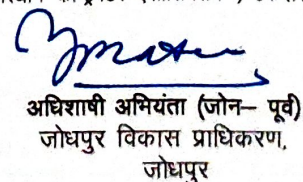 अधिशाषी अमियंता (जोन– पूर्व)
जोधपुर विकास प्राधिकरण,
जोधपुर